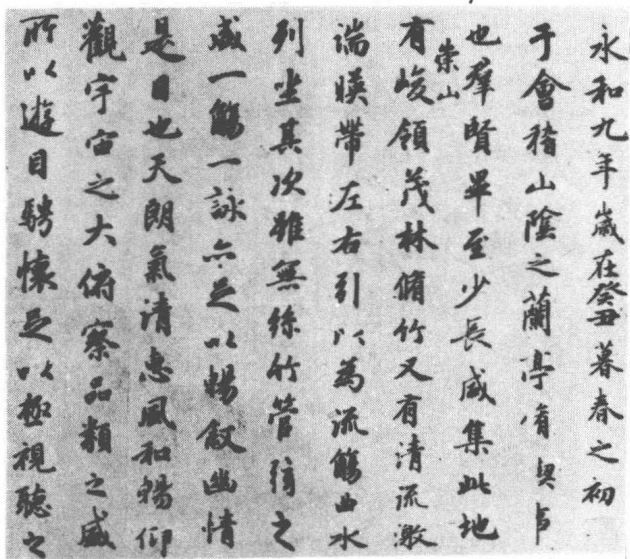 永和九年歲在癸丑暮春之初
于會稽山陰之蘭亭脩禊事
也羣賢畢至少長咸集此地
有崇山峻領茂林脩竹又有清流激
湍暎帶左右引以為流觴曲水
列坐其次雖無絲竹管弦之
盛一觴一詠亦足以暢敘幽情
是日也天朗氣清惠風和暢仰
觀宇宙之大俯察品類之盛
所以遊目騁懷足以極視聽之